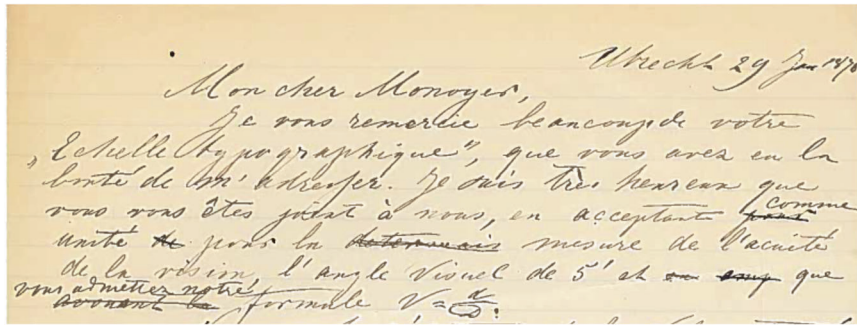 Utrecht 29 Jan 1876
Mon cher Monoyer,
Je vous remercie beaucoup de votre
„Echelle typographique”, que vous avez eu la
bonté de m'adresser. Je suis très heureux que
vous vous êtes joint à nous, en acceptant comme
unité pour la mesure de l'acuité
de la vision, l'angle visuel de 5' et que
vous admettez notre formule V = d/D.